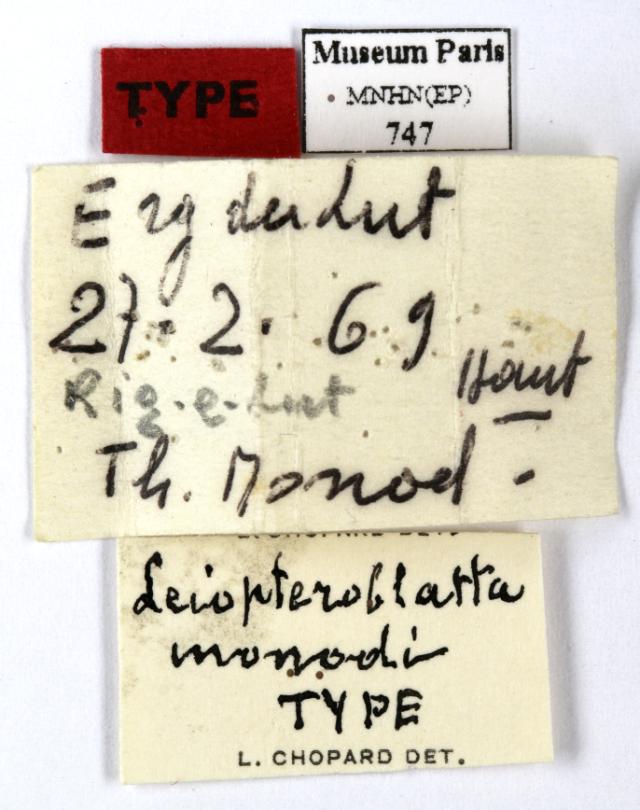 TYPE
Museum Paris
MNHN(EP)
747
Erg du Lut
27. 2. 69
Rig-e-Lut
Haut
Th. Monod.
L. CHOPARD DET.
Leiopteroblatta
monodi
TYPE
L. CHOPARD DET.